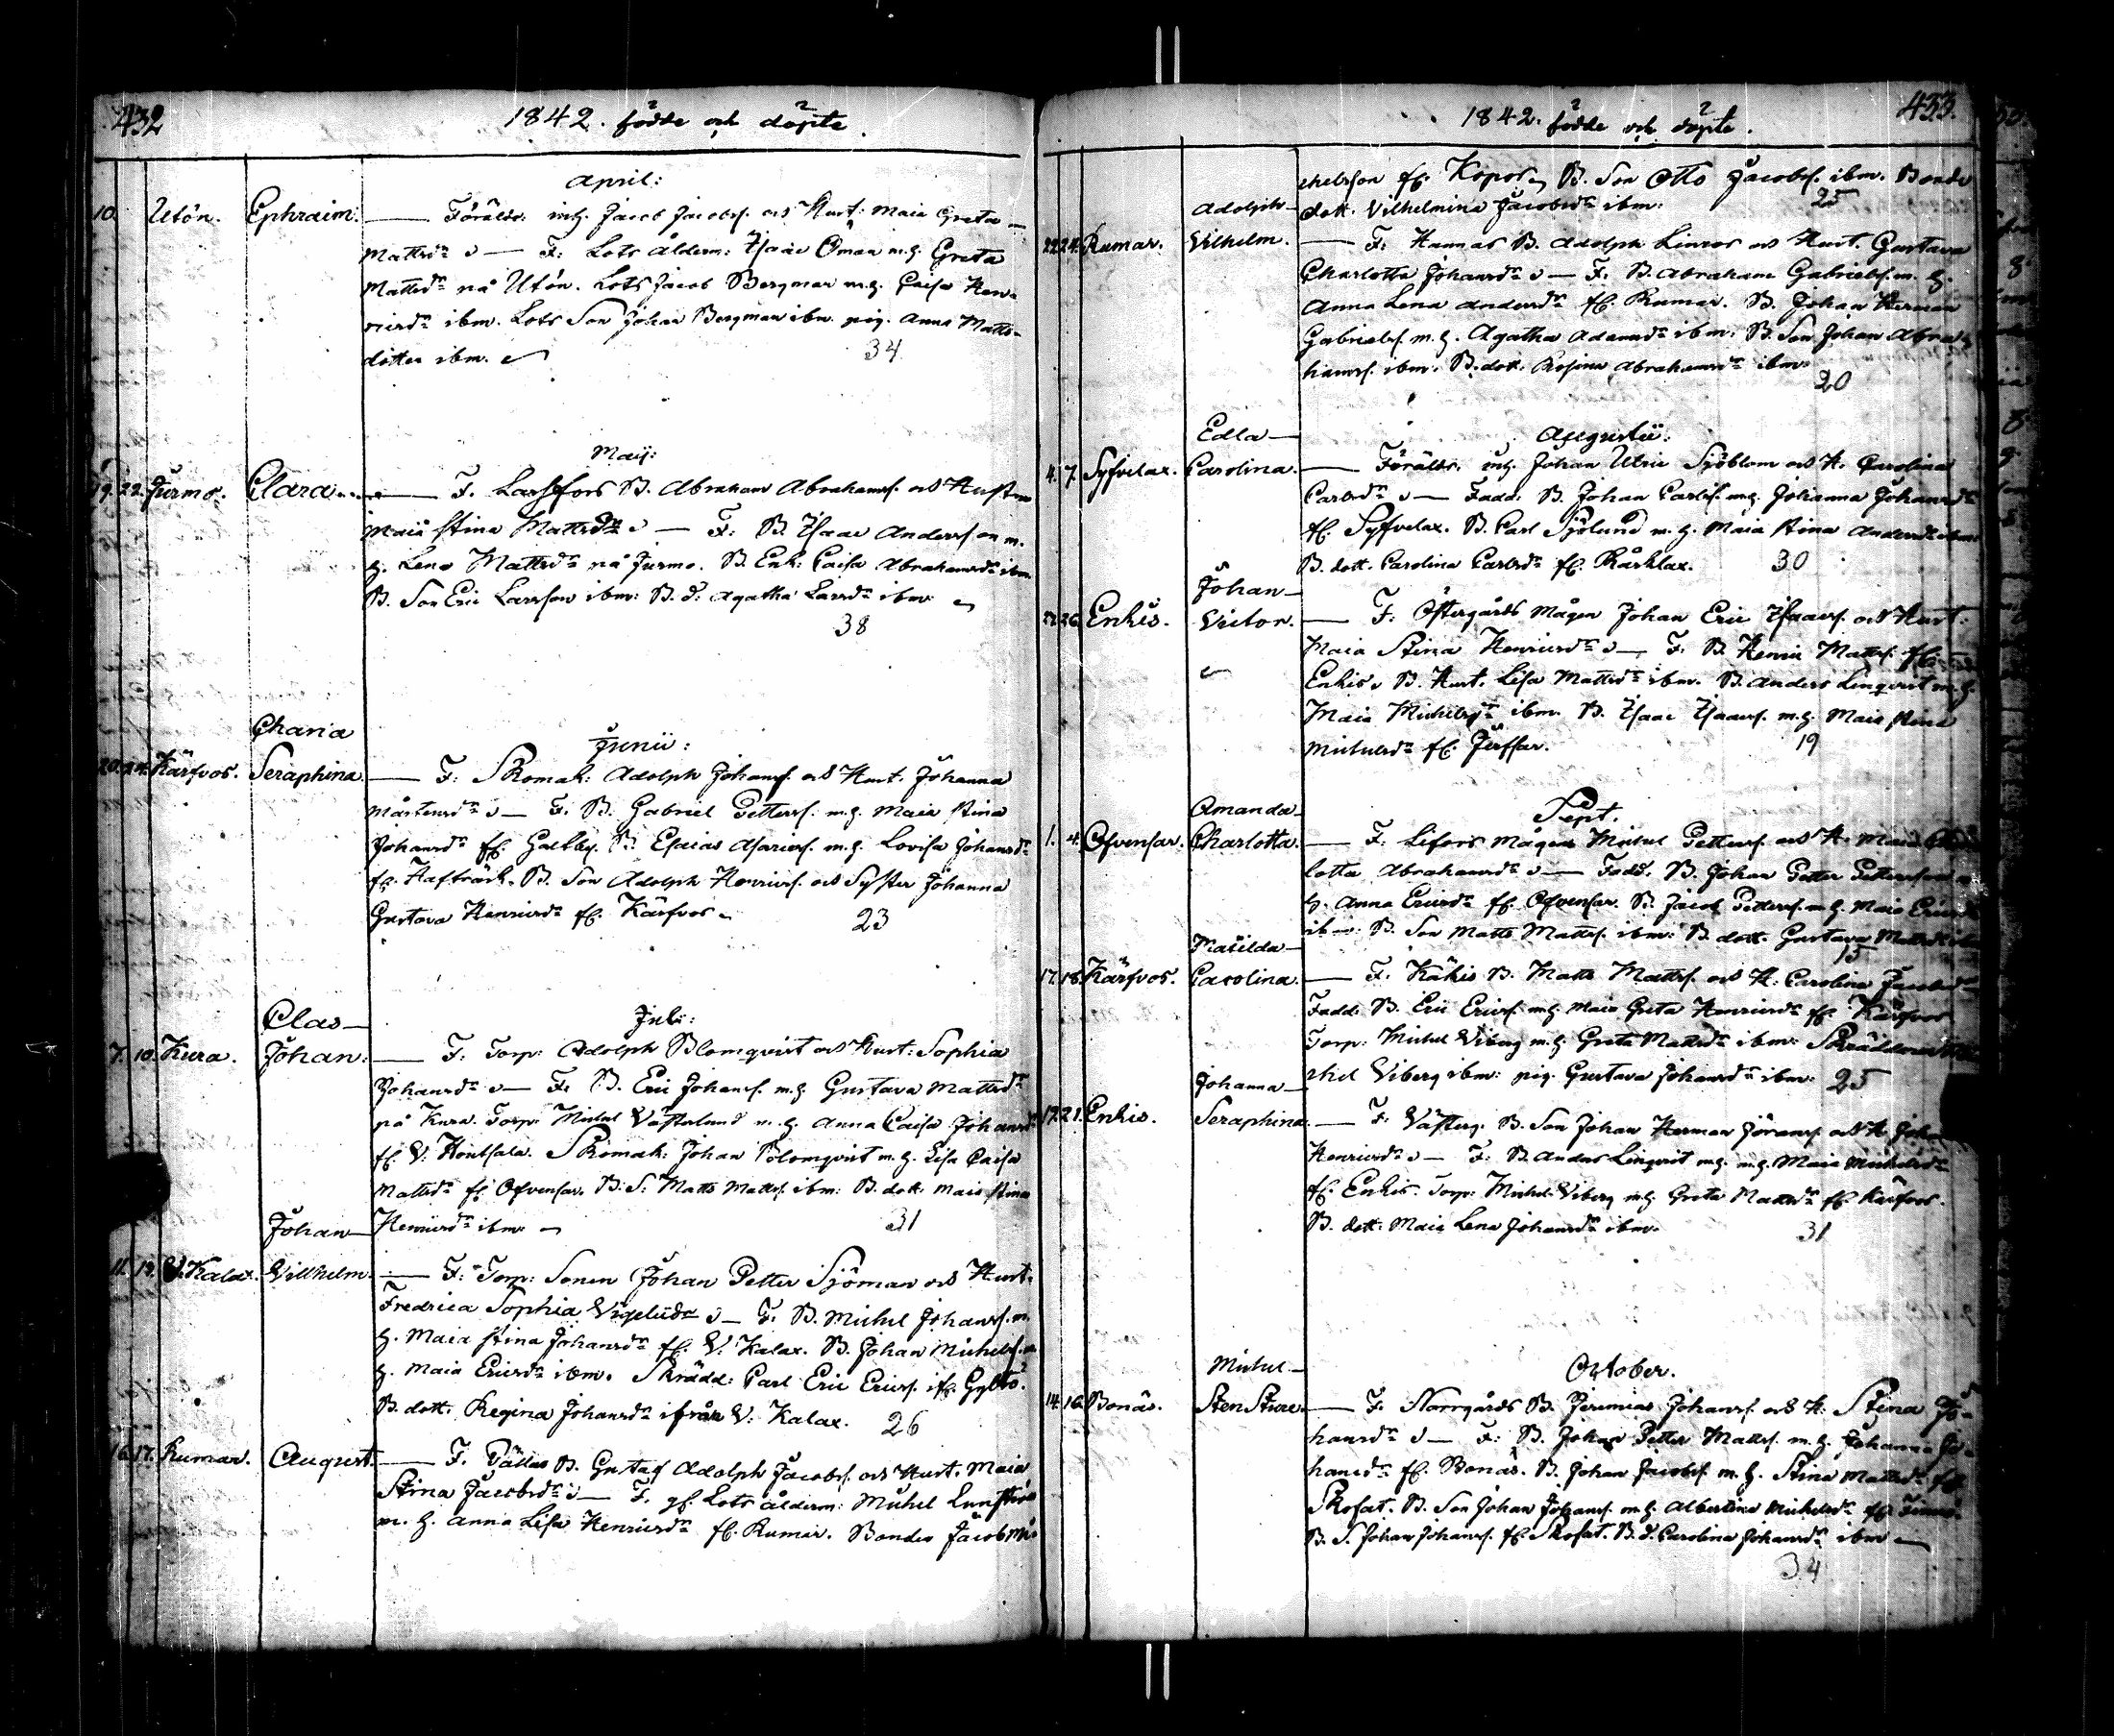 432
1842. födde och döpte.
April:
10. Utön. Ephraim. — Föräldr: inh. Jacob Jacobss. och Hust: Maia Greta
Mattsdr — F: Lots ålderm: Isaac Öman m.h. Greta
Mattsdr på Utön. Lots Jacob Bergman m.h. Caisa Hen-
ricsdr ibm. Lots Son Johan Bergman ibm. pig. Anna Matts-
dotter ibm.
34
Maij:
19. 22. Jurmo. Clara — F. Larssfors B. Abraham Abrahamss. och Hustru
Maia Stina Mattsdr — F: B. Isaac Andersson m.
h. Lena Mattsdr på Jurmo. B. Enk: Caisa Abrahamsdr ibm.
B. Son Eric Larsson ibm: B. d: Agatha Larsdr ibm:
38
Charia
Junii:
20. 24. Kärfvos. Seraphina — F: Skomak: Adolph Johanss. och Hust. Johanna
Mårtensdr — F: B. Gabriel Petterss. m.h. Maia Stina
Johansdr fr. Galtby. B. Esaias Asariass. m.h. Lovisa Johansdr
fr. Hafträsk. B. Son Adolph Henricss. och Syster Johanna
Gustava Henricsdr fr. Kärfvos
23
Clas
Juli:
7. 10. Kura. Johan: — F: Torp: Adolph Blomqvist och Hust: Sophia
Johansdr — F: B. Eric Johanss. m.h. Gustava Mattsdr
på Kura. Torp: Michel Västerlund m.h. Anna Caisa Johansdr
fr. V: Hontsala. Skomak: Johan Blomqvist m.h. Lisa Caisa
Mattsdr fr. Ofvensar. B. S: Matts Mattss. ibm: B. dott: Maia Stina
Henricsdr ibm:
31
Johan
11. V. Kalax. Villhelm. — F: Torp: Sonen Johan Petter Sjöman och Hust:
Fredrica Sophia — F: B. Michel Johanss. m.
h. Maia Stina Johansdr fr. V. Kalax. B. Johan Michelss. m.
h. Maia Ericsdr ibm. Skrädd: Carl Eric Ericss. ifr. Gyltö.
B. dott. Regina Johansdr ifrån V: Kalax.
26
16. 17. Rumar. August. — F. Pällas B. Gustaf Adolph Jacobss. och Hust. Maia
Stina Jacobsdr — F. gf. Lots ålderm: Michel
m. h. Anna Lisa Henricsdr fr. Rumar. Bonden Jacob Mi-
453.
1842. födde och döpte.
chelsson fr. Korpo, B. Son Otto Jacobss. ibm. Bonde
dott. Vilhelmina Jacobsdr ibm:
25
Adolph
22. 24. Rumar. Vilhelm. — F: Hannas B. Adolph Linros och Hust. Gustava
Charlotta Johansdr — F: B. Abraham Gabrielss. m. h.
Anna Lena Andersdr fr. Rumar. B. Johan Herman
Gabrielss. m.h. Agatha Adamsdr ibm: B. Son Johan Abra-
hamss. ibm. B. dott. Rosina Abrahamsdr ibm:
20
Edla
Augustii:
4. 7. Syfvelax. Carolina. — Föräldr. inh. Johan Ulric Sjöblom och H. Carolina
Carlsdr — Fadd: B. Johan Carlss. m.h. Johanna Johansdr
fr. Syfvelax. B. Carl Sjölund m. h. Maia Stina Andersdr ibm
B. dott. Carolina Carlsdr fr. Kårklax.
30
Johan
26. Enkis. Victor. — F: Östergårds mågen Johan Eric Isaacss. och Hust.
Maia Stina Henricsdr — F: B. Henric Mattss. fr.
Enkis. B. Hust. Lisa Mattsdr ibm. B. Anders Linqvist m.h.
Maia Michelsdr ibm. B. Isaac Isaacss. m.h. Maia Stina
Michelsdr fr. Järssar.
19
Amanda
Sept.
1. 4. Ofvensar. Charlotta. — F: Lifors mågen Michel Petterss. och H. Maia Char-
lotta Abrahamsdr — Fadd. B. Johan Petter Pettersson m
h. Anna Ericsdr fr. Ofvensar. B. Jacob Petterss. m.h. Maia Ericsdr
ibm: B. Son Matts Mattss. ibm: B. dott. Gustava Mattsdr ibm
15
Matilda
17. 18. Kärfvos. Carolina. — F: Kåkis B. Matts Mattss. och H: Carolina Jacobsdr
Fadd: B. Eric Ericss. m.h. Maia Greta Henricsdr fr. Kärfvos
Torp: Michel Viberg m.h. Greta Mattsdr ibm: Skräddaren Mi-
chel Viberg ibm: pig. Gustava Johansdr ibm:
25
Johanna
17. 21. Enkis. Seraphina. — F: Västerg. B. Son Johan Herman Göranss. och H.
Henricsdr — F: B. Anders Linqvist m.h. Maia Michelsdr
fr. Enkis. Torp: Michel Viberg m.h. Greta Mattsdr fr. Kärfvos.
B. dott: Maia Lena Johansdr ibm.
31
Michel
October.
14. 16. Bonäs. Sten Sture. — F: Norrgårds B. Jeremias Johanss. och H: Stina Jo-
hansdr — F: B. Johan Petter Mattss. m.h. Johanna Jo-
hansdr fr. Bonäs. B. Johan Jacobss. m. h. Stina Mattsdr fr.
Skofat. B. Son Johan Johanss. m.h. Albertina Michelsdr fr.
B. S. Johan Johanss. fr. Skofat. B. d. Carolina Johansdr ibm
34